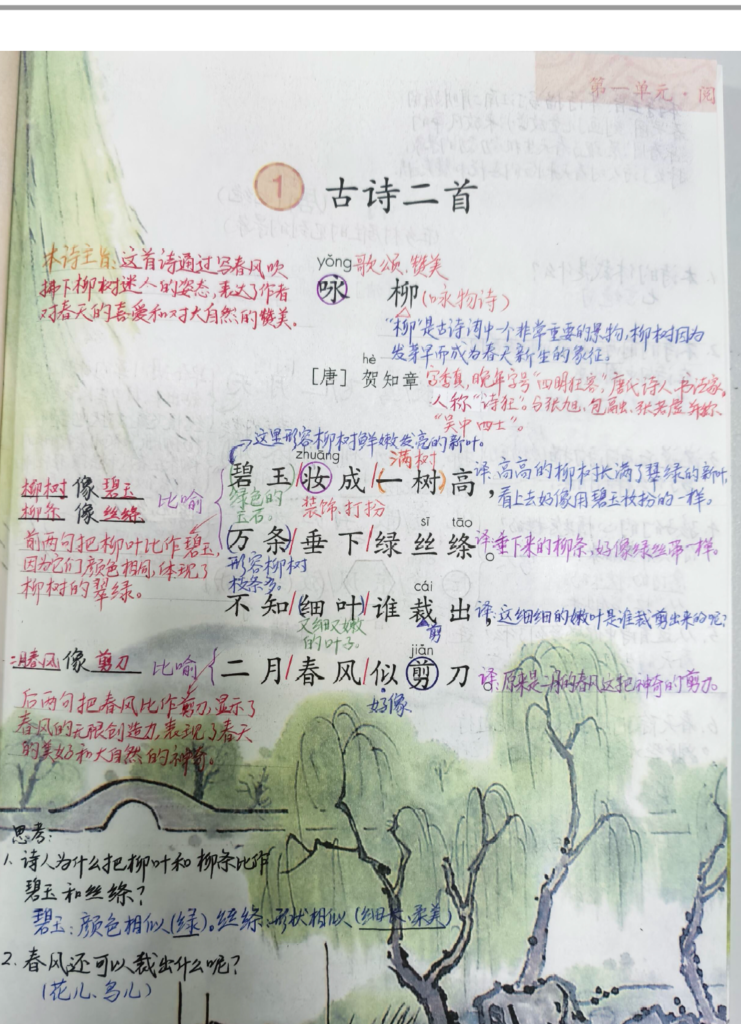 第一单元·阅
1 古诗二首
本诗主旨:这首诗通过写春风吹
拂下柳树迷人的姿态,表达了作者
对春天的喜爱和对大自然的赞美.
yǒng 歌颂.赞美
咏 柳(咏物诗)
"柳"是古诗词中一个非常重要的景物,柳树因为
发芽早而成为春天新生的象征。
hè
[唐] 贺知章
字季真,晚年字号"四明狂客",唐代诗人.书法家.
人称"诗狂"。与张旭、包融、张若虚并称
"吴中四士"。
这里形容柳树鲜嫩发亮的新叶。
zhuāng 满树
碧玉/妆成/(一树)高,
译:高高的柳树长满了翠绿的新叶,
看上去好像用碧玉妆扮的一样。
绿色的
玉石。
装饰.打扮
柳树像碧玉
柳条像丝绦
比喻
前两句把柳叶比作碧玉,
因为它们颜色相同,体现了
柳树的翠绿。
sī tāo
万条/垂下/绿丝绦。
译:垂下来的柳条,好像绿丝带一样。
形容柳树
枝条多。
cái
不知/细叶/谁裁出,
译:这细细的嫩叶是谁裁剪出来的呢?
又细又嫩
的叶子.
剪
jiǎn
二月/春风/似剪刀
译:原来是二月的春风这把神奇的剪刀.
好像
二月春风像剪刀
比喻
后两句把春风比作剪刀,显示了
春风的无限创造力,表现了春天
的美好和大自然的神奇。
思考:
1.诗人为什么把柳叶和柳条比作
碧玉和丝绦?
碧玉:颜色相似(绿)。丝绦:形状相似(细长、柔美)
2.春风还可以裁出什么呢?
(花儿、鸟儿)